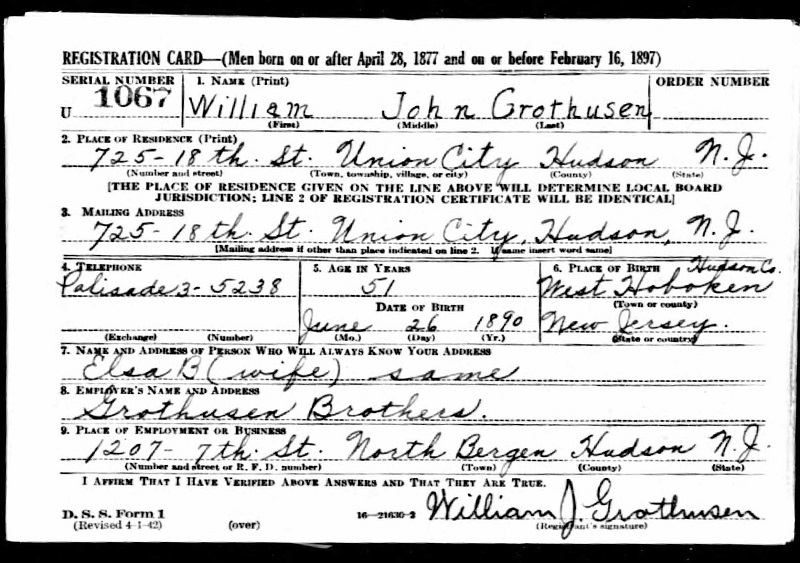 REGISTRATION CARD—(Men born on or after April 28, 1877 and on or before February 16, 1897)
SERIAL NUMBER 1. NAME (Print) ORDER NUMBER
U 1067 William John Grothusen
(First) (Middle) (Last)
2. PLACE OF RESIDENCE (Print)
725-18th. St. Union City Hudson N.J.
(Number and street) (Town, township, village, or city) (County) (State)
[THE PLACE OF RESIDENCE GIVEN ON THE LINE ABOVE WILL DETERMINE LOCAL BOARD
JURISDICTION; LINE 2 OF REGISTRATION CERTIFICATE WILL BE IDENTICAL]
3. MAILING ADDRESS
725-18th. St. Union City, Hudson, N.J.
[Mailing address if other than place indicated on line 2. If same insert word same]
4. TELEPHONE 5. AGE IN YEARS 6. PLACE OF BIRTH Hudson Co.
Palisade 3-5238 51 West Hoboken
(Town or county)
DATE OF BIRTH
June 26 1890 New Jersey.
(Exchange) (Number) (Mo.) (Day) (Yr.) (State or country)
7. NAME AND ADDRESS OF PERSON WHO WILL ALWAYS KNOW YOUR ADDRESS
Elsa B (wife) same
8. EMPLOYER'S NAME AND ADDRESS
Grothusen Brothers.
9. PLACE OF EMPLOYMENT OR BUSINESS
1207-7th. St. North Bergen Hudson N.J.
(Number and street or R. F. D. number) (Town) (County) (State)
I AFFIRM THAT I HAVE VERIFIED ABOVE ANSWERS AND THAT THEY ARE TRUE.
D. S. S. Form 1
(Revised 4-1-42) (over) 16—21630-2 William J. Grothusen
(Registrant's signature)